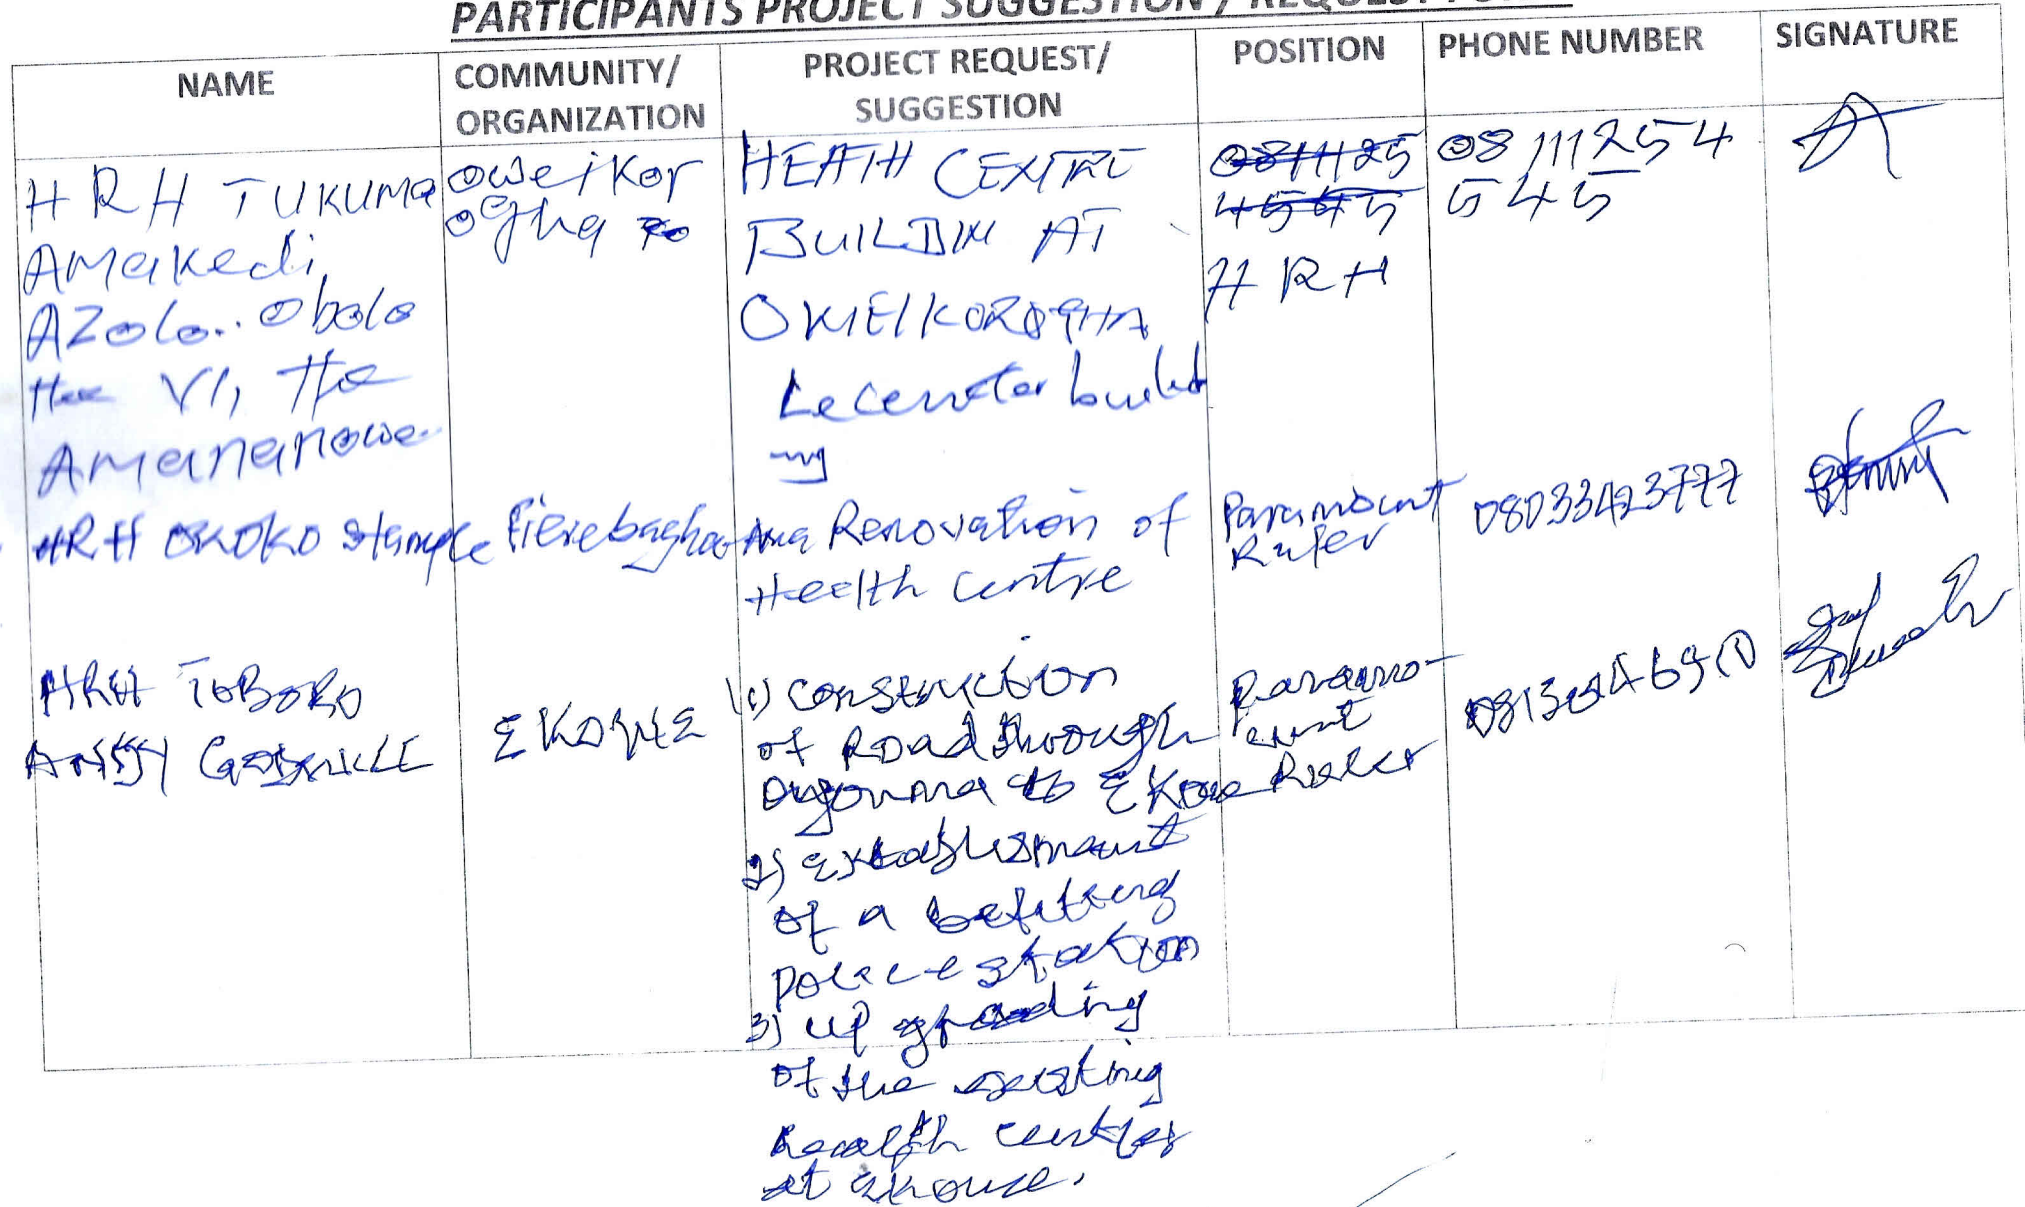 PARTICIPANTS PROJECT SUGGESTION / REQUEST
NAME
COMMUNITY/
ORGANIZATION
PROJECT REQUEST/
SUGGESTION
POSITION
PHONE NUMBER
SIGNATURE
HRH TUKUMA
Amakedi
AZolo.. Obolo
the VI, the
Amananowe
oweikor
ogha
HEATH CENTRE
BUILDIN AT
OKIEIKOROGHA
building
0811125
4545
HRH
08111254
545
HRH OKOKO Stample
Fierebagha-Ama
Renovation of
Health Centre
Paramount
Ruler
08033423777
HRH TOBORO
EKOWE
1) Construction
of Road through
to Ekowe
2) Establisment
of a befitting
police station
3) up grading
of the existing
health centres
at Ekowe.
Paramo-
unt
Ruler